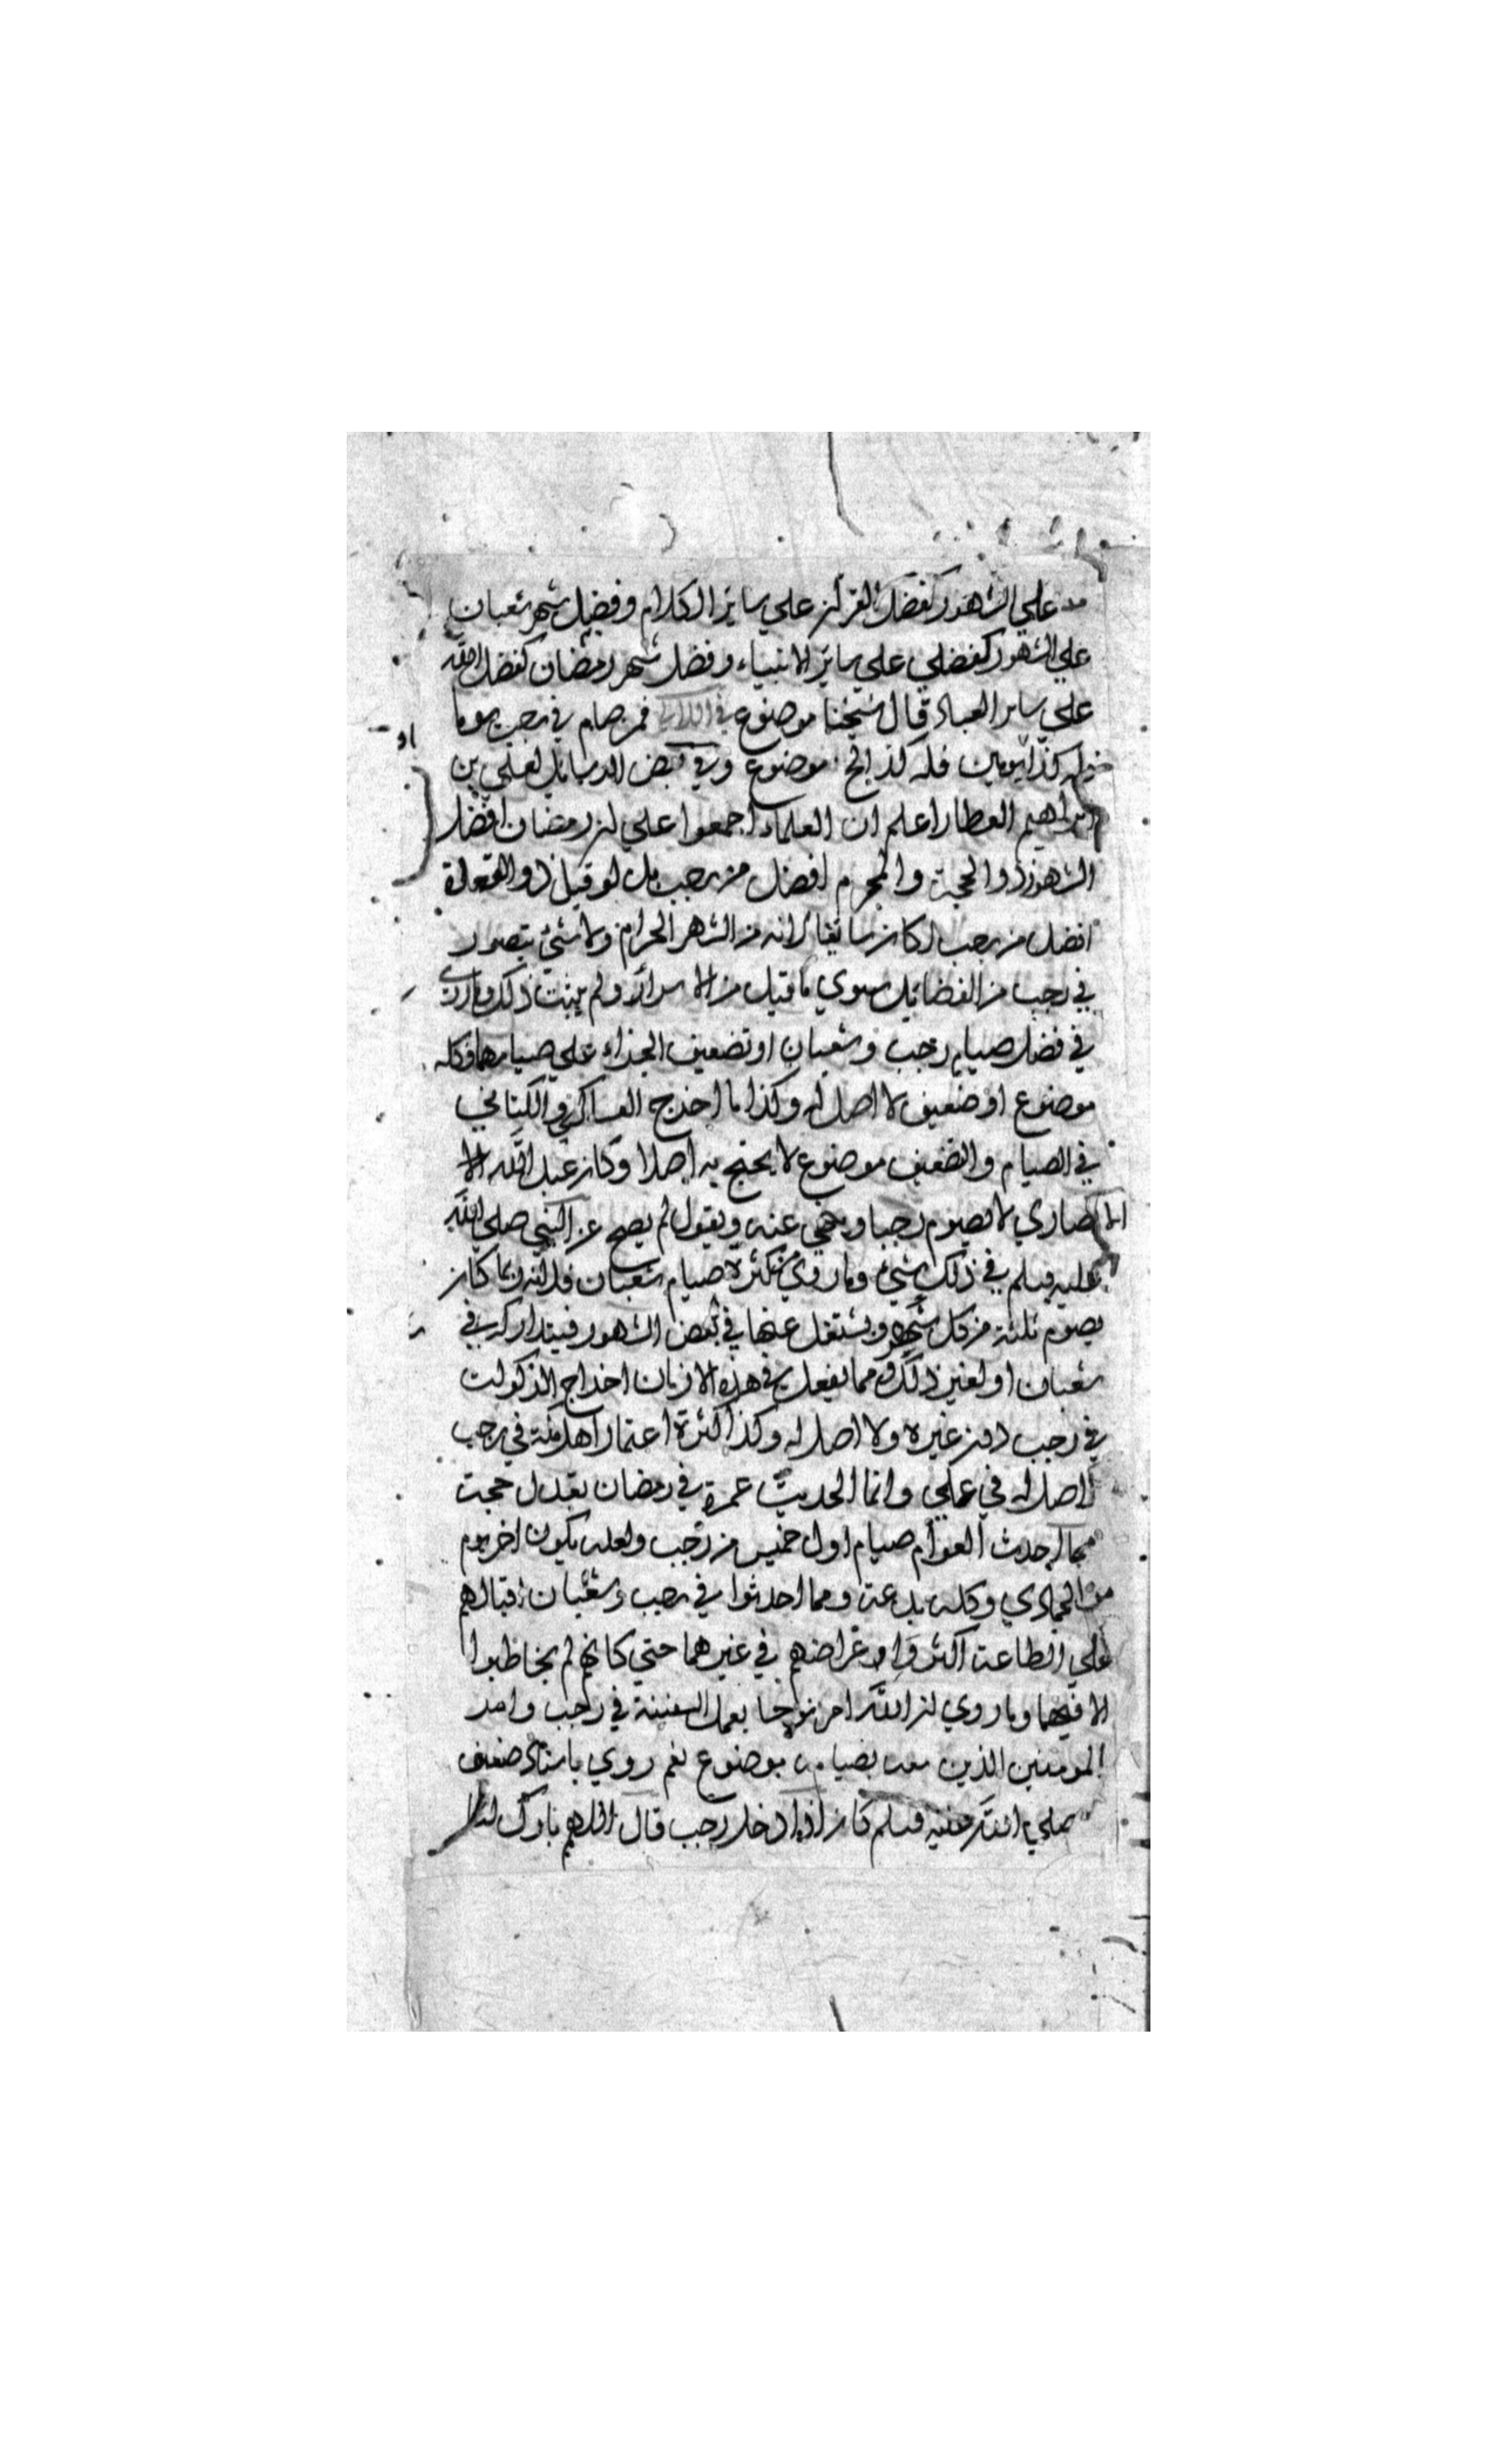 علي الشهور كفضل القرآن علي سائر الكلام وفضل شهر شعبان
علي الشهور كفضلي علي سائر الانبياء وفضل شهر رمضان كفضل الله
علي سائر العباد قال شيخنا موضوع في فمن صام في رجب يوما
فله كذا يومين فله كذا الخ موضوع وفي بعض الرسائل لعلي بن
ابراهيم العطار اعلم ان العلماء اجمعوا علي ان رمضان افضل
الشهور وذو الحجة والمحرم افضل من رجب بل لو قيل ذو القعدة
افضل من رجب لكان سائغا لانه من الشهر الحرام ولا شيء يتصور
في رجب من الفضائل سوي ما قيل من الاسراء ولم يثبت ذلك وما روي
في فضل صيام رجب وشعبان او تضعيف الجزاء علي صيامهما فكله
موضوع او ضعيف لا اصل له وكذا ما اخرج العساكر والكتاني
في الصيام والتضعيف موضوع لا يحتج به اصلا وكان عبد الله الا
الانصاري لا يصوم رجبا وينهي عنه ويقول لم يصح عن النبي صلي الله
عليه وسلم في ذلك شيء وما روي من كثرة صيام شعبان فلانه ربما كان
يصوم ثلثة من كل شهر ويشتغل عنها في بعض الشهور فيتداركه في
شعبان او لغير ذلك ومما يفعل في هذه الازمان اخراج الزكوات
في رجب دون غيره ولا اصل له وكذا كثرة اعتمار اهل مكة في رجب
لا اصل له في علمي وانما الحديث عمرة في رمضان تعدل حجة
مما احدث العوام صيام اول خميس من رجب ولعله يكون اخر يوم
من الجمادي وكله بدعة ومما احدثوا في رجب وشعبان اقبالهم
علي الطاعة اكثر واعراضهم في غيرهما حتي كانهم لم يخاطبوا
الا فيهما وما روي ان الله امر نوحا بعمل السفينة في رجب وامر
المومنين الذين معه بصيامه موضوع نعم روي باسناد ضعيف
صلي الله عليه وسلم كان اذا دخل رجب قال اللهم بارك لنا